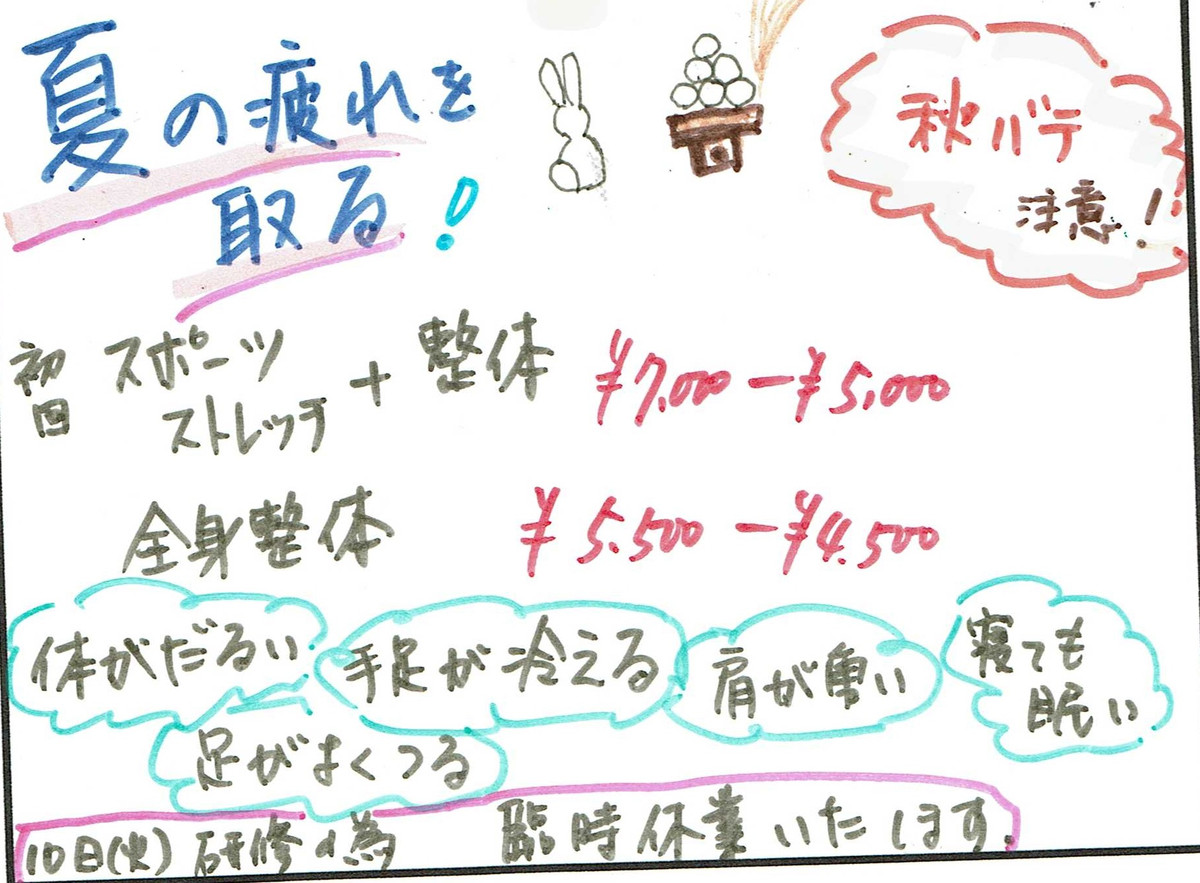 夏の疲れを
取る!
秋バテ
注意!
初回 スポーツストレッチ + 整体 ¥7,000 ー ¥5,000
全身整体 ¥5,500 ー ¥4,500
体がだるい
手足が冷える
肩が重い
寝ても
眠い
足がよくつる
10日(火) 研修の為 臨時休業いたします。